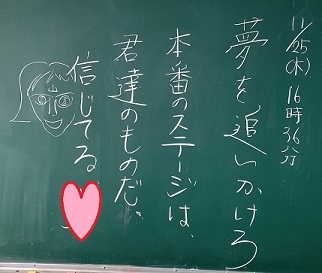 11/25(木)16時36分
夢を追いかけろ
本番のステージは、
君達のものだ、
信じてる